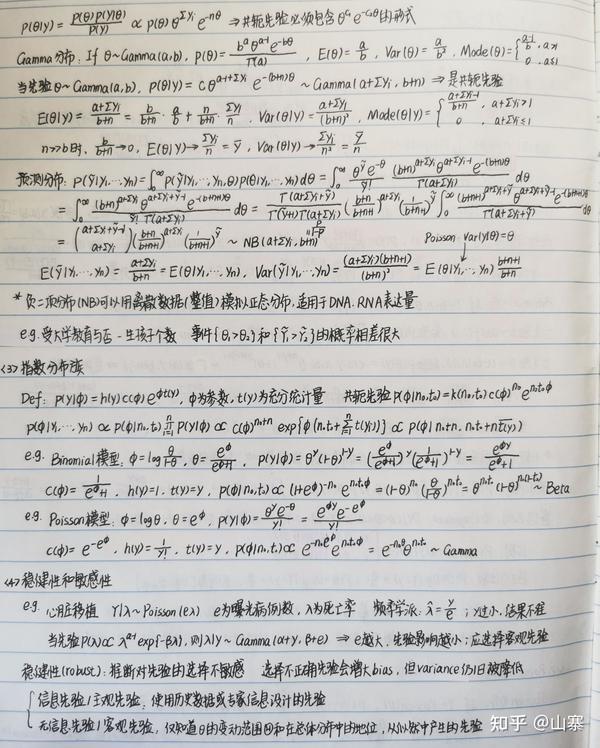 P(θ|y) = P(θ)P(y|θ)/P(y) ∝ P(θ) θ^{Σyᵢ} e^{-nθ} ⇒ 共轭先验必须包含 θ^{c₁}e^{-c₂θ} 的形式
Gamma分布: If θ~Gamma(a,b), P(θ) = b^a θ^{a-1} e^{-bθ}/Γ(a), E(θ) = a/b, Var(θ) = a/b², Mode(θ) = { (a-1)/b, a>1; 0, a≤1
当先验θ~Gamma(a,b), P(θ|y) = Cθ^{a-1+Σyᵢ} e^{-(b+n)θ} ~ Gamma(a+Σyᵢ, b+n) ⇒ 是共轭先验
E(θ|y) = (a+Σyᵢ)/(b+n) = b/(b+n) · a/b + n/(b+n) · Σyᵢ/n, Var(θ|y) = (a+Σyᵢ)/(b+n)², Mode(θ|y) = { (a+Σyᵢ-1)/(b+n), a+Σyᵢ>1; 0, a+Σyᵢ≤1
n>>b时, b/(b+n)→0, E(θ|y)→Σyᵢ/n = ȳ, Var(θ|y)→Σyᵢ/n² = ȳ/n
预测分布: P(ỹ|y₁,…,yₙ) = ∫₀^∞ P(ỹ|y₁,…,yₙ,θ)P(θ|y₁,…,yₙ)dθ = ∫₀^∞ θ^ỹ e^{-θ}/ỹ! · (b+n)^{a+Σyᵢ} θ^{a+Σyᵢ-1} e^{-(b+n)θ}/Γ(a+Σyᵢ) dθ
= ∫₀^∞ (b+n)^{a+Σyᵢ} θ^{a+Σyᵢ+ỹ-1} e^{-(b+n+1)θ}/(ỹ! Γ(a+Σyᵢ)) dθ = Γ(a+Σyᵢ+ỹ)/(Γ(ỹ+1)Γ(a+Σyᵢ)) ((b+n)/(b+n+1))^{a+Σyᵢ} (1/(b+n+1))^ỹ ∫₀^∞ (b+n+1)^{a+Σyᵢ+ỹ} θ^{a+Σyᵢ+ỹ-1} e^{-(b+n+1)θ}/Γ(a+Σyᵢ+ỹ) dθ
= (a+Σyᵢ+ỹ-1 \choose a+Σyᵢ-1) ((b+n)/(b+n+1))^{a+Σyᵢ} (1/(b+n+1))^ỹ ~ NB(a+Σyᵢ, b+n)
Poisson Var(y|θ)=θ
E(ỹ|y₁,…,yₙ) = (a+Σyᵢ)/(b+n) = E(θ|y₁,…,yₙ), Var(ỹ|y₁,…,yₙ) = (a+Σyᵢ)(b+n+1)/(b+n)² = E(θ|y₁,…,yₙ) (b+n+1)/(b+n)
* 负二项分布(NB)可以用离散数据(整值)模拟正态分布, 适用于DNA, RNA表达量
e.g. 受大学教育与否-生孩子个数 事件{θ₁>θ₂}和{ỹ₁>ỹ₂}的概率相差很大
<3> 指数分布族
Def: P(y|ϕ) = h(y)c(ϕ)e^{ϕt(y)}, ϕ为参数, t(y)为充分统计量 共轭先验P(ϕ|n₀,t₀) = k(n₀,t₀)c(ϕ)^{n₀}e^{n₀t₀ϕ}
P(ϕ|y₁,…,yₙ) ∝ P(ϕ|n₀,t₀) ∏ᵢ₌₁ⁿ P(yᵢ|ϕ) ∝ c(ϕ)^{n₀+n} exp{ϕ(n₀t₀+Σᵢ₌₁ⁿ t(yᵢ))} ∝ P(ϕ|n₀+n, n₀t₀+n t̄(y))
e.g. Binomial模型: ϕ=log θ/(1-θ), θ = e^ϕ/(e^ϕ+1), P(y|ϕ) = θ^y(1-θ)^{1-y} = (e^ϕ/(e^ϕ+1))^y (1/(e^ϕ+1))^{1-y} = e^{ϕy}/(e^ϕ+1)
c(ϕ) = 1/(e^ϕ+1), h(y)=1, t(y)=y, P(ϕ|n₀,t₀) ∝ (1+e^ϕ)^{-n₀} e^{n₀t₀ϕ} = (1-θ)^{n₀} (θ/(1-θ))^{n₀t₀} = θ^{n₀t₀}(1-θ)^{n₀(1-t₀)} ~ Beta
e.g. Poisson模型: ϕ=logθ, θ=e^ϕ, P(y|ϕ) = θ^y e^{-θ}/y! = e^{ϕy}e^{-e^ϕ}/y!
c(ϕ) = e^{-e^ϕ}, h(y)=1/y!, t(y)=y, P(ϕ|n₀,t₀) ∝ e^{-n₀e^ϕ}e^{n₀t₀ϕ} = e^{-n₀θ}θ^{n₀t₀} ~ Gamma
<4> 稳健性和敏感性
e.g. 心脏移植 Y|λ~Poisson(eλ) e为曝光病例数, λ为死亡率 频率学派: λ̂ = y/e; y过小, 结果不稳
当先验P(λ)∝λ^{α-1}exp{-βλ}, 则λ|y~Gamma(α+y, β+e) ⇒ e越大, 先验影响越小; 应选择客观先验
稳健性(robust): 推断对先验的选择不敏感 选择不正确先验会增大bias, 但variance仍旧被降低
{ 信息先验/主观先验: 使用历史数据或专家信息设计的先验
无信息先验/客观先验: 仅知道θ的变动范围Θ和在总体分布中的地位, 从似然中产生的先验
知乎 @山寨